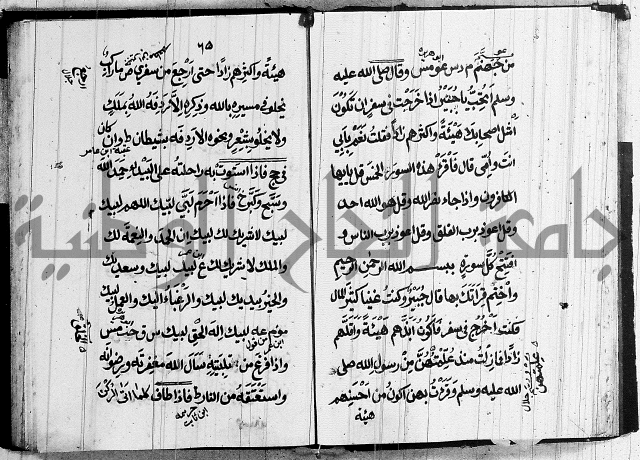 من جهنم م دس عو مس وقال صلى الله عليه
وسلم اتحب يا جبير اذا خرجت في سفر ان تكون
امثل اصحابك هيئة واكثرهم زادا فقلت نعم بابي
انت وامي قال فاقرء هذه السور الخمس قل يا ايها
الكافرون واذا جاء نصر الله وقل هو الله احد
وقل اعوذ برب الفلق وقل اعوذ برب الناس و
افتتح كل سورة ببسم الله الرحمن الرحيم
واختم قراتك بها قال جبير وكنت غنيا كثير المال
فكنت اخرج في سفر فاكون ابذهم هيئة واقلهم
زادا فما زلت منذ علمتهن من رسول الله صلى
الله عليه وسلم وقرأت بهن اكون من احسنهم
هيئة
٦٥
هيئة واكثرهم زادا حتى ارجع من سفري ص ما راكب
يخلو في مسيره بالله وذكره الا ردفه الله بملك
ولا يخلو بشعر ونحوه الا ردفه بشيطان ط وان كان
في حج فاذا استوت به راحلته على البيداء حمد الله
وسبح وكبر خ فاذا احرم لبى لبيك اللهم لبيك
لبيك لا شريك لك لبيك ان الحمد والنعمة لك
والملك لا شريك لك ع لبيك لبيك وسعديك
والخير بيديك لبيك والرغباء اليك والعمل لبيك
مو م عه لبيك اله الحق لبيك س ق حب مس
واذا فرغ من تلبيته سال الله مغفرته ورضوانه
واستعتقه من النار ط فاذا طاف كلما اتى الركن
جامعة النجاح الوطنية